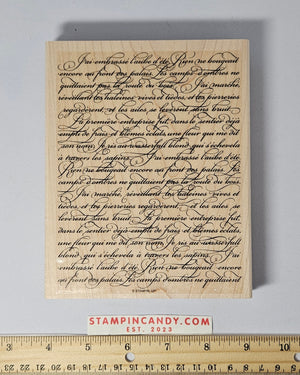 J'ai embrassé l'aube d'été. Rien ne bougeait
encore au front des palais. Les camps d'ombres ne
quittaient pas la route du bois. J'ai marché,
réveillant les haleines vives et tièdes, et les pierreries
regardèrent, et les ailes se levèrent sans bruit.
La première entreprise fut, dans le sentier déjà
empli de frais et blêmes éclats, une fleur qui me dit
son nom. Je ris au wasserfall blond qui s'échevela
à travers les sapins. J'ai embrassé l'aube d'été.
Rien ne bougeait encore au front des palais. Les
camps d'ombres ne quittaient pas la route du bois.
J'ai marché, réveillant les haleines vives et
tièdes, et les pierreries regardèrent, et les ailes se
levèrent sans bruit. La première entreprise fut,
dans le sentier déjà empli de frais et blêmes éclats,
une fleur qui me dit son nom. Je ris au wasserfall
blond qui s'échevela à travers les sapins. J'ai
embrassé l'aube d'été. Rien ne bougeait encore
au front des palais. Les camps d'ombres ne quittaient
STAMPINCANDY.COM
EST. 2023